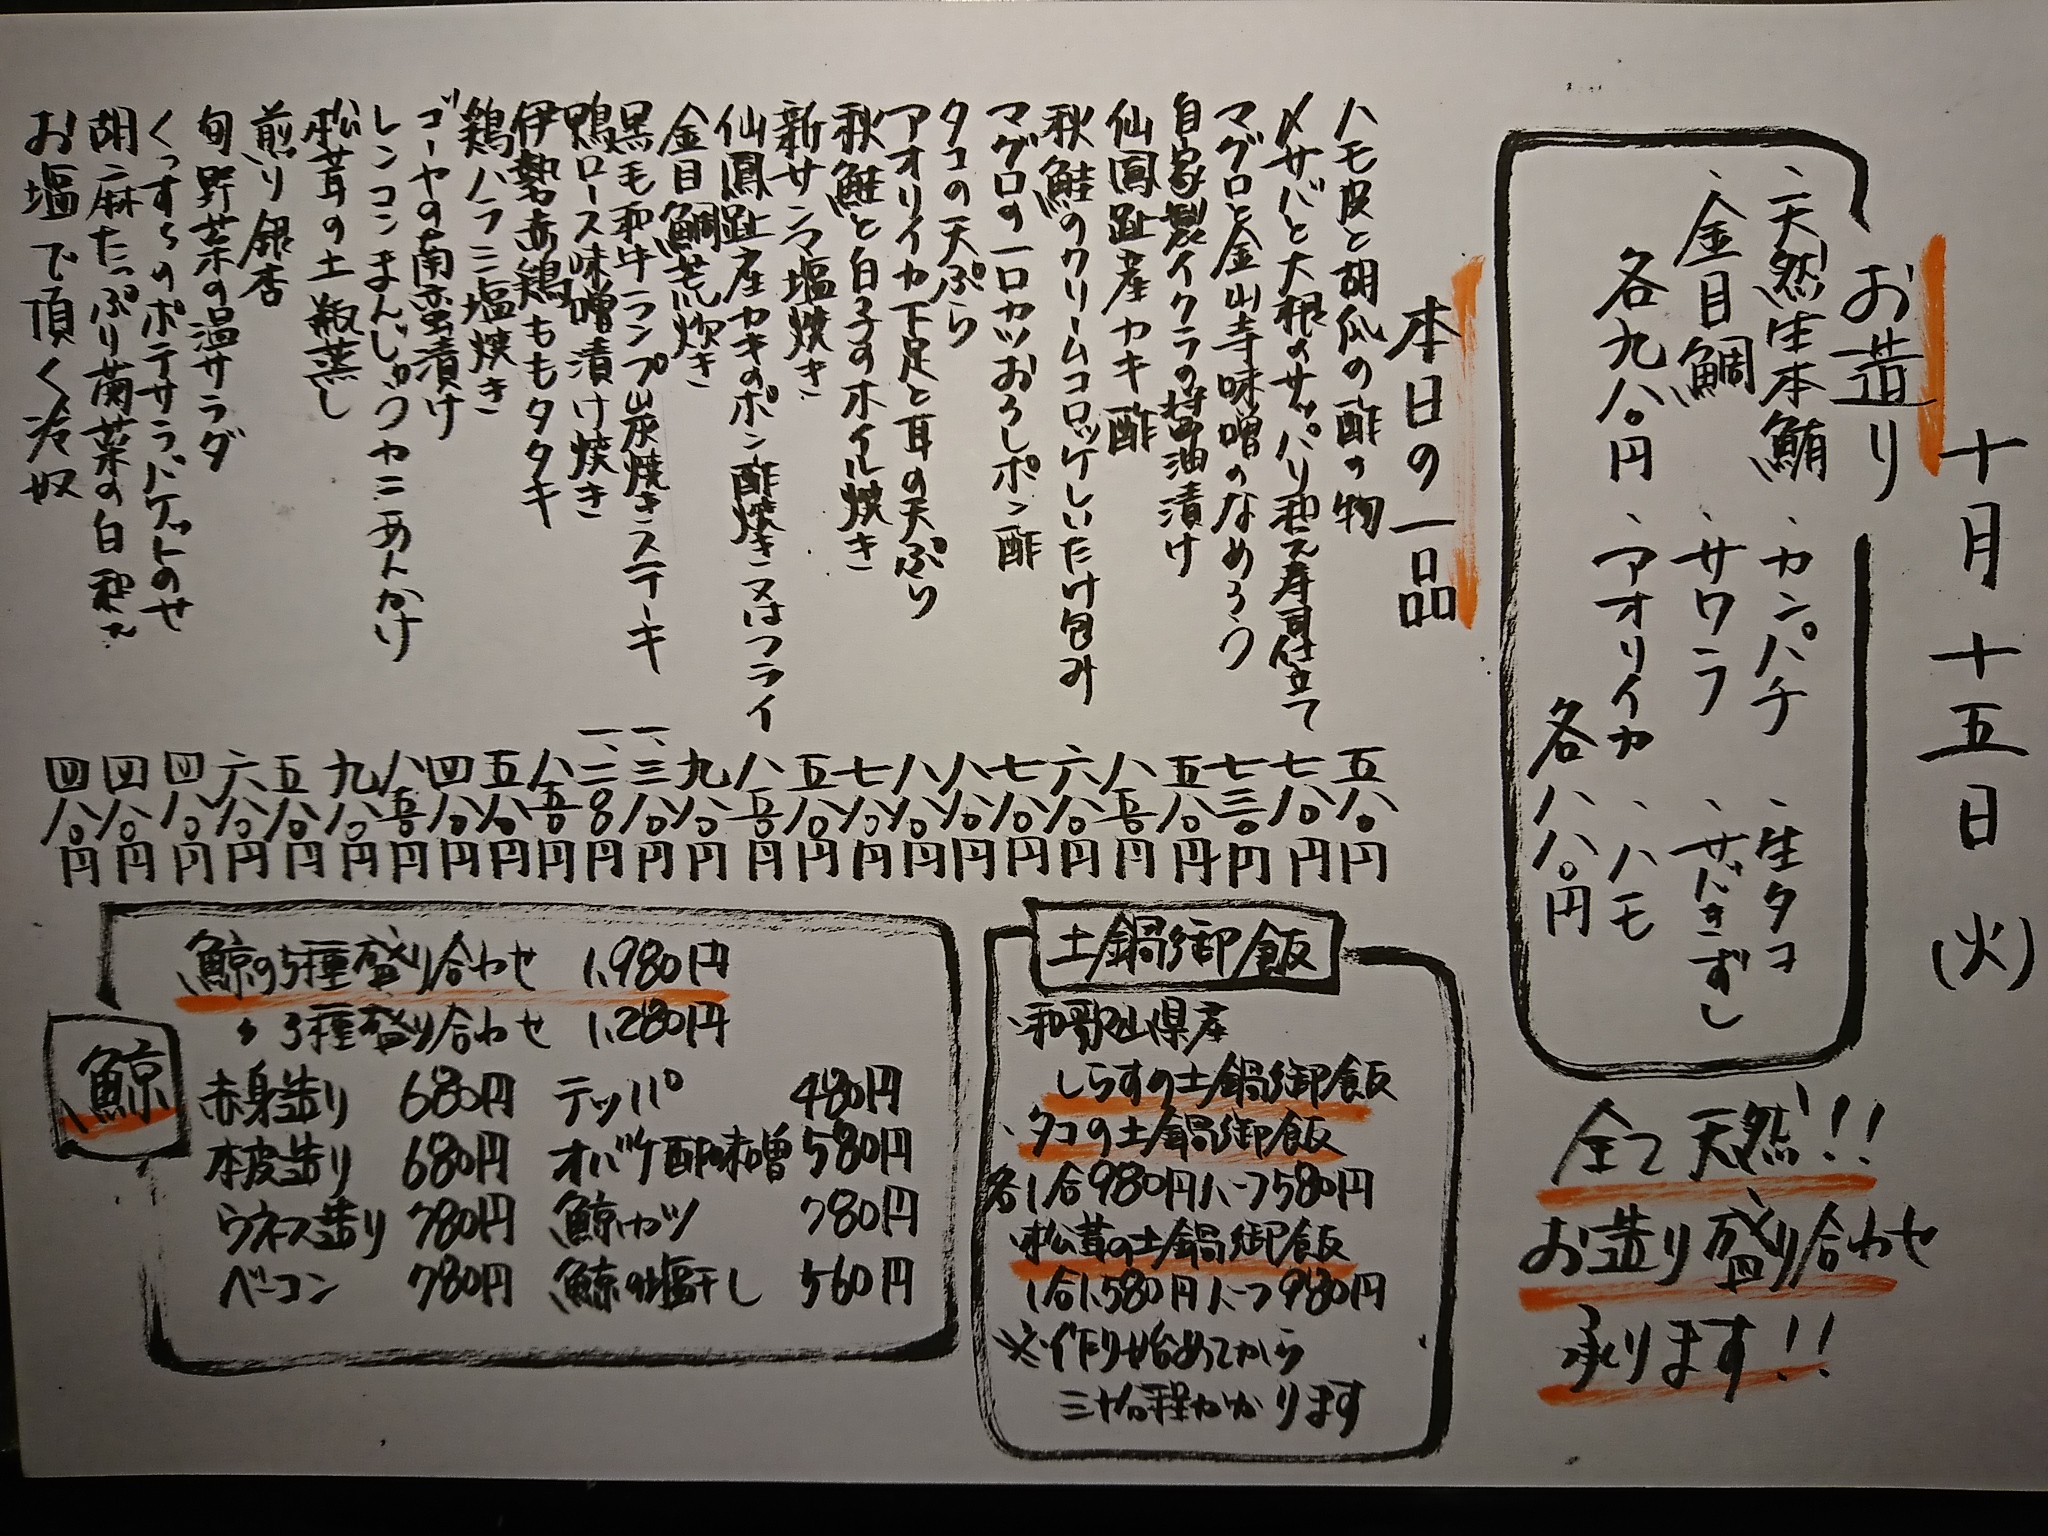 十月十五日(火)
お造り
、天然生本鮪
、金目鯛
各九八〇円
、カンパチ
、サワラ
、アオリイカ
、生タコ
、サバきずし
、ハモ
各八八〇円
全て天然!!
お造り盛り合わせ
承ります!!
本日の一品
ハモ皮と胡瓜の酢の物 五八〇円
〆サバと大根のサッパリ和え寿司仕立て 七八〇円
マグロと金山寺味噌のなめろう 七三〇円
自家製イクラの醤油漬け 五八〇円
仙鳳趾産カキ酢 八五〇円
秋鮭のクリームコロッケしいたけ包み 六八〇円
マグロの一口カツおろしポン酢 七八〇円
タコの天ぷら 八八〇円
アオリイカ下足と耳の天ぷら 八八〇円
秋鮭と白子のホイル焼き 七八〇円
新サンマ塩焼き 五八〇円
仙鳳趾産カキのポン酢焼き又はフライ 八五〇円
金目鯛荒炊き 九八〇円
黒毛和牛ランプ炭焼きステーキ 一、三八〇円
鴨ロース味噌漬け焼き 一、二八〇円
伊勢赤鶏ももタタキ 八五〇円
鶏ハラミ塩焼き 五八〇円
ゴーヤの南蛮漬け 四八〇円
レンコンまんじゅうカニあんかけ 八五〇円
松茸の土瓶蒸し 九八〇円
煎り銀杏 五八〇円
旬野菜の温サラダ 六八〇円
くっすんのポテサラバケットのせ 四八〇円
胡麻たっぷり菊菜の白和え 四八〇円
お塩で頂く冷奴 四八〇円
土鍋御飯
、和歌山県産
しらすの土鍋御飯
、タコの土鍋御飯
各1合980円ハーフ580円
、松茸の土鍋御飯
1合1,580円ハーフ980円
※作り始めてから
三十分程かかります
鯨
鯨の5種盛り合わせ 1,980円
〃 3種盛り合わせ 1,280円
赤身造り 680円 テッパ 480円
本皮造り 680円 オバケ酢味噌 580円
ウネス造り 780円 鯨カツ 780円
ベーコン 780円 鯨の塩干し 560円